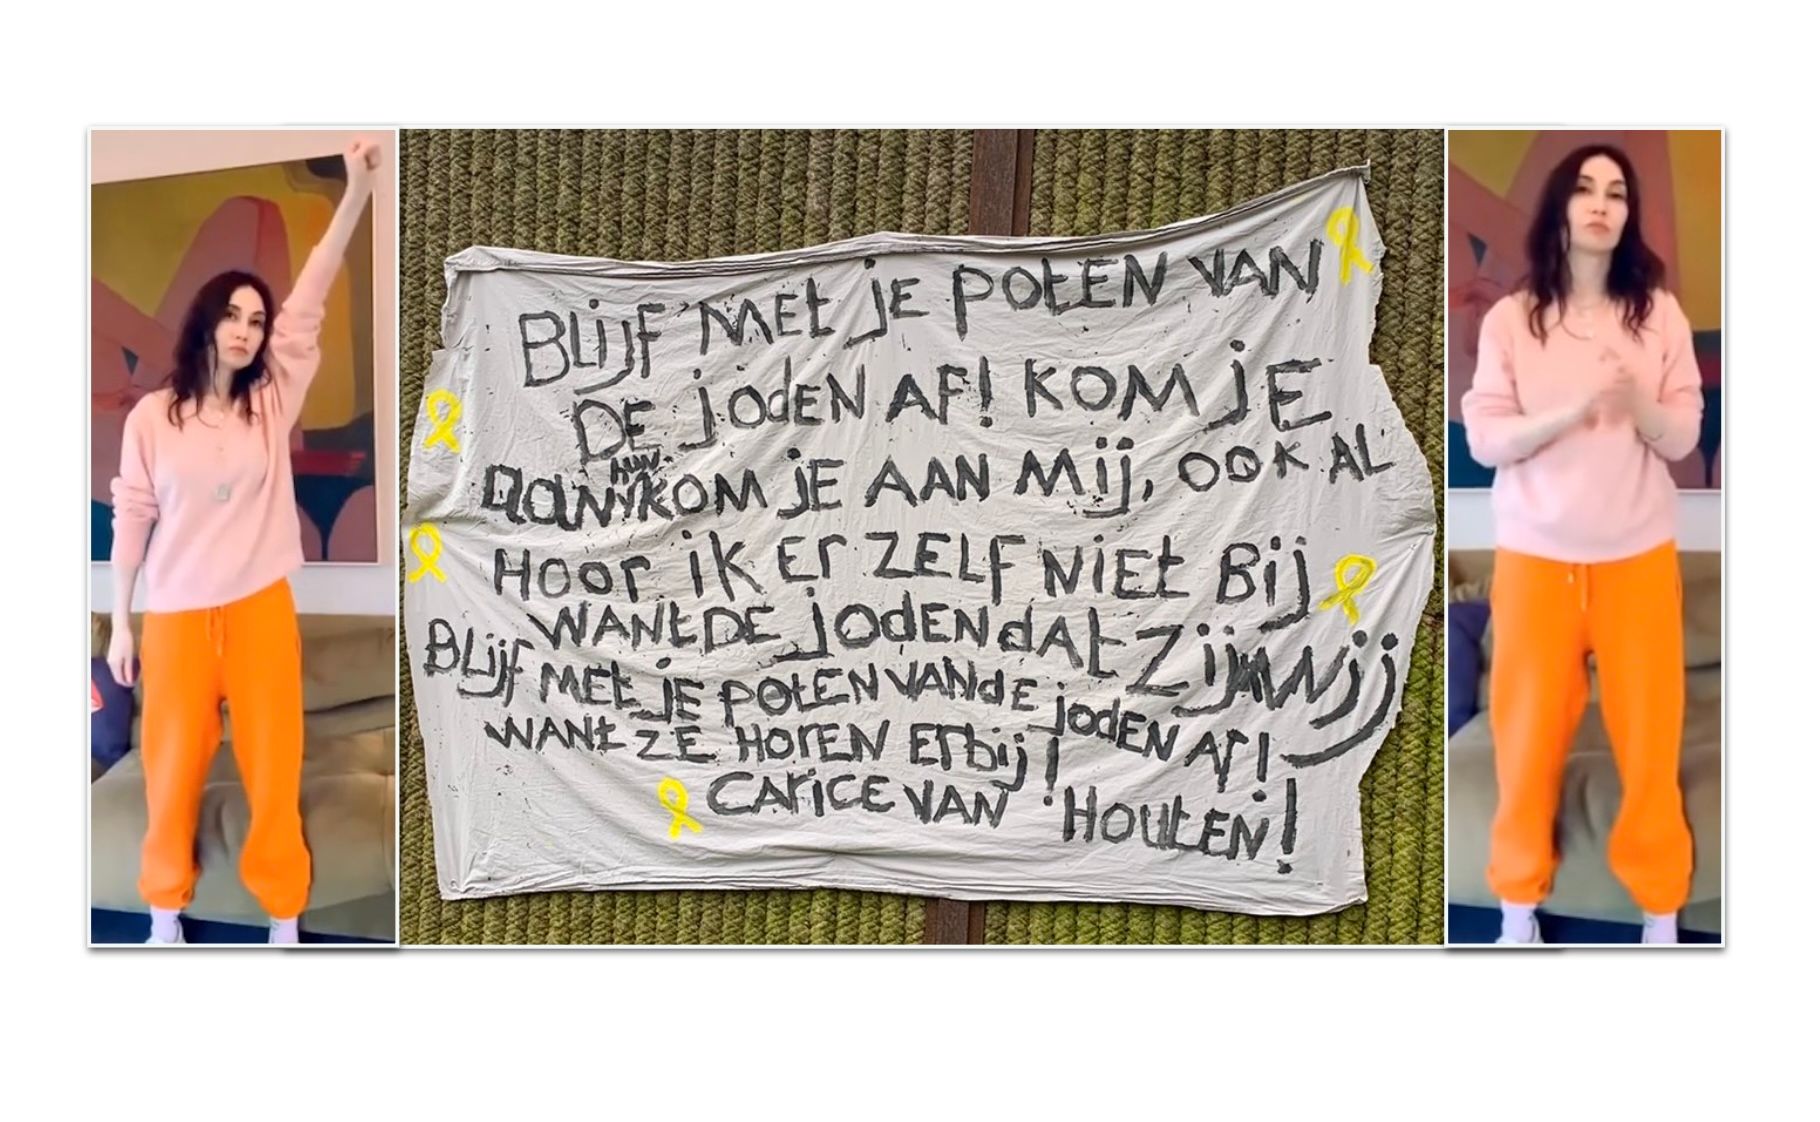 BLijF MET jE POTEN VAN
DE jodEN AF! KOM jE
aan HUN KOM jE AAN Mij, OOK AL
HOOr iK Er ZELF NiET Bij
WANT DE jodEN dAT Zijn Wij
BLijf MET jE POTEN VAN dE jodEN AF!
WANT ZE HOrEN Erbij!
CAriCE VAN HOUTEN!